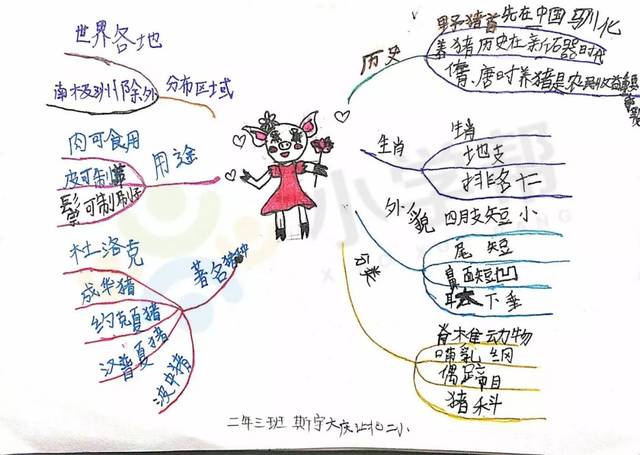 世界各地
南极洲除外
分布区域
肉可食用
皮可制革
鬃可制刷
用途
杜洛克
成华猪
约克夏猪
汉普夏猪
波中猪
著名猪种
历史
野猪首先在中国驯化
养猪历史在新石器时代
隋、唐时养猪是农民收益
生肖
生肖
地支
排名十二
外貌
四月支短小
尾短
鼻面短凹
耳大下垂
分类
脊椎动物
哺乳纲
偶蹄目
猪科
二年三班
小学帮